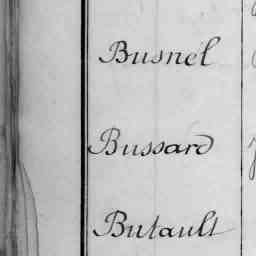 Busnel
Bussard
Butault